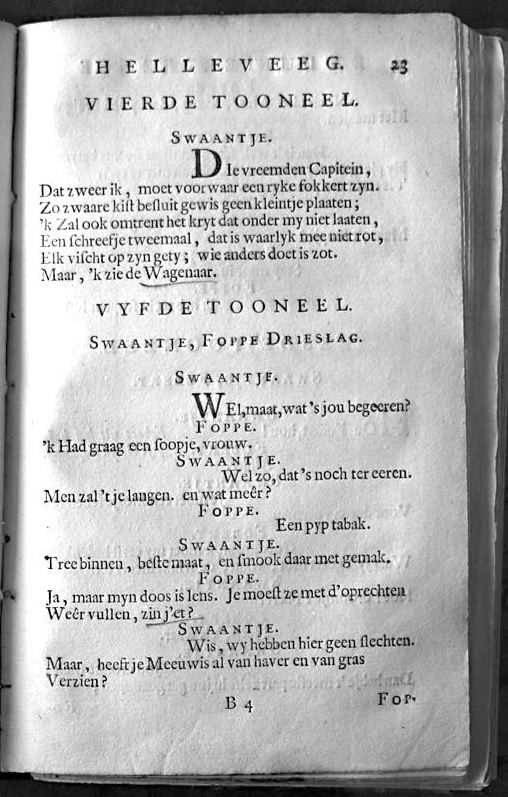 HELLEVEEG. 23
VIERDE TOONEEL.
SWAANTJE.
DIe vreemden Capitein,
Dat zweer ik, moet voorwaar een ryke fokkert zyn.
Zo zwaare kist besluit gewis geen kleintje plaaten;
'k Zal ook omtrent het kryt dat onder my niet laaten,
Een schreefje tweemaal, dat is waarlyk mee niet rot,
Elk vischt op zyn gety; wie anders doet is zot.
Maar, 'k zie de Wagenaar.
VYFDE TOONEEL.
SWAANTJE, FOPPE DRIESLAG.
SWAANTJE.
WEl, maat, wat 's jou begeeren?
FOPPE.
'k Had graag een soopje, vrouw.
SWAANTJE.
Wel zo, dat 's noch ter eeren.
Men zal 't je langen. en wat meêr?
FOPPE.
Een pyp tabak.
SWAANTJE.
Tree binnen, beste maat, en smook daar met gemak.
FOPPE.
Ja, maar myn doos is lens. Je moest ze met d'oprechten
Weêr vullen, zin j'et?
SWAANTJE.
Wis, wy hebben hier geen slechten.
Maar, heeft je Meeuwis al van haver en van gras
Verzien?
B 4 FOP-